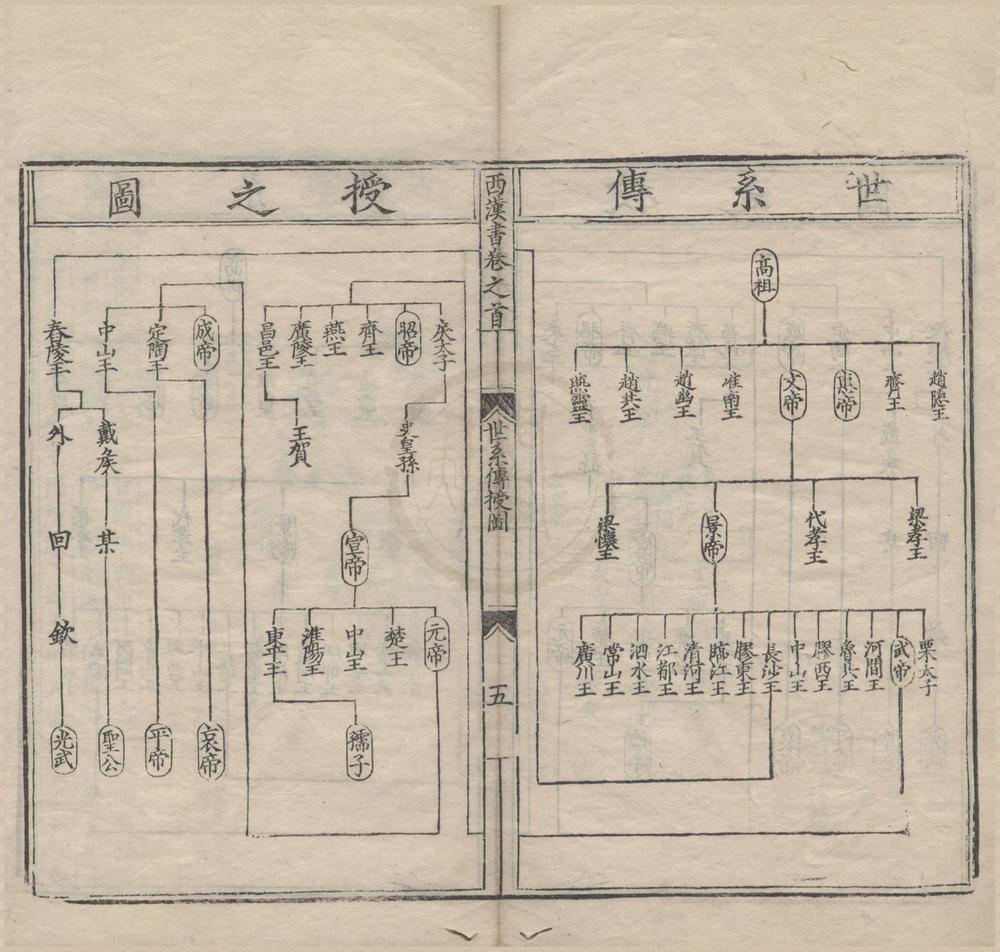 世系傳
高祖
趙隱王
齊王
惠帝
文帝
淮南王
趙幽王
趙共王
燕靈王
梁孝王
代孝王
景帝
梁懷王
栗太子
武帝
河間王
魯共王
膠西王
中山王
長沙王
膠東王
臨江王
清河王
江都王
泗水王
常山王
廣川王
西漢書卷之首
世系傳授圖
五
授之圖
戾太子
昭帝
齊王
燕王
廣陵王
昌邑王
史皇孫
王賀
宣帝
元帝
楚王
中山王
淮陽王
東平王
孺子
成帝
定陶王
中山王
舂陵王
戴矦
外
某
回
欽
哀帝
平帝
聖公
光武